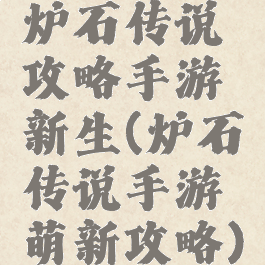 炉石传说
攻略手游
新生(炉石
传说手游
萌新攻略)